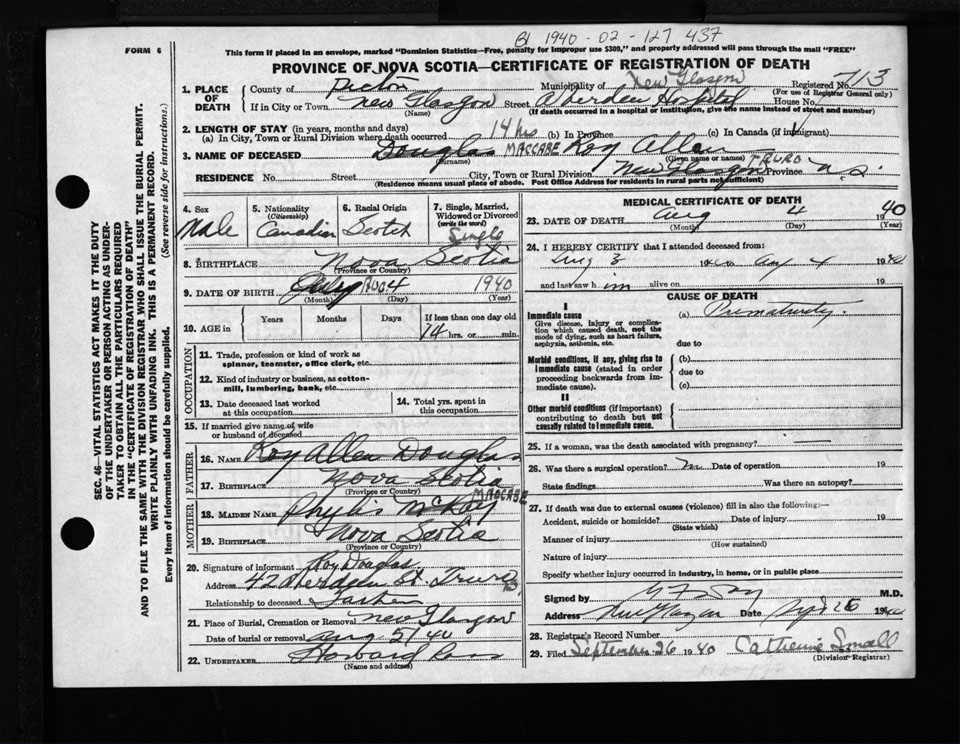 BI 1940-02-127 437
FORM 6
This form if placed in an envelope, marked "Dominion Statistics—Free, penalty for improper use $300," and properly addressed will pass through the mail "FREE"
PROVINCE OF NOVA SCOTIA—CERTIFICATE OF REGISTRATION OF DEATH
1. PLACE OF DEATH
County of Pictou Municipality of New Glasgow Registered No. 713
(For use of Registrar General only)
If in City or Town New Glasgow Street Aberdeen Hospital House No.
(Name) (If death occurred in a hospital or institution, give the name instead of street and number)
2. LENGTH OF STAY (in years, months and days)
(a) In City, Town or Rural Division where death occurred 14 hrs (b) In Province (c) In Canada (if immigrant)
3. NAME OF DECEASED Douglas MACCABE Roy Allen
(Surname) (Given name or names)
RESIDENCE No. Street City, Town or Rural Division New Glasgow TRURO Province N.S.
(Residence means usual place of abode. Post Office Address for residents in rural parts not sufficient)
4. Sex
Male
5. Nationality
(Citizenship)
Canadian
6. Racial Origin
Scotch
7. Single, Married,
Widowed or Divorced
(write the word)
Single
8. BIRTHPLACE Nova Scotia
(Province or Country)
9. DATE OF BIRTH July AUG 4 1940
(Month) (Day) (Year)
10. AGE in
Years Months Days If less than one day old
14 hrs. or min.
OCCUPATION
11. Trade, profession or kind of work as
spinner, teamster, office clerk, etc.
12. Kind of industry or business, as cotton-
mill, lumbering, bank, etc.
13. Date deceased last worked
at this occupation
14. Total yrs. spent in
this occupation
15. If married give name of wife
or husband of deceased
FATHER
16. NAME Roy Allen Douglas
17. BIRTHPLACE Nova Scotia
(Province or Country)
MOTHER
18. MAIDEN NAME Phylis McKay MACCABE
19. BIRTHPLACE Nova Scotia
(Province or Country)
20. Signature of informant Roy Douglas
Address 42 Aberdeen St. Truro
Relationship to deceased Father
21. Place of Burial, Cremation or Removal New Glasgow
Date of burial or removal Aug 5/40
22. UNDERTAKER Howard
(Name and address)
MEDICAL CERTIFICATE OF DEATH
23. DATE OF DEATH Aug 4 1940
(Month) (Day) (Year)
24. I HEREBY CERTIFY that I attended deceased from:
Aug 3 1940 to Aug 4 1940
and last saw him alive on 19
CAUSE OF DEATH
I
Immediate cause (a) Prematurity.
Give disease, injury or complica-
tion which caused death, not the
mode of dying, such as heart failure,
asphyxia, asthenia, etc.
due to
Morbid conditions, if any, giving rise to
immediate cause (stated in order
proceeding backwards from im-
mediate cause).
(b)
due to
(c)
II
Other morbid conditions (if important)
contributing to death but not
causally related to immediate cause.
25. If a woman, was the death associated with pregnancy?
26. Was there a surgical operation? no Date of operation 19
State findings Was there an autopsy?
27. If death was due to external causes (violence) fill in also the following:—
Accident, suicide or homicide? Date of injury 19
(State which)
Manner of injury
(How sustained)
Nature of injury
Specify whether injury occurred in industry, in home, or in public place
Signed by M.D.
Address New Glasgow Date 26 1940
28. Registrar's Record Number
29. Filed September 26 1940 Catherine Small
(Division Registrar)
SEC. 46—VITAL STATISTICS ACT MAKES IT THE DUTY
OF THE UNDERTAKER OR PERSON ACTING AS UNDER-
TAKER TO OBTAIN ALL THE PARTICULARS REQUIRED
IN THE "CERTIFICATE OF REGISTRATION OF DEATH"
AND TO FILE THE SAME WITH THE DIVISION REGISTRAR WHO SHALL ISSUE THE BURIAL PERMIT.
WRITE PLAINLY WITH UNFADING INK. THIS IS A PERMANENT RECORD.
Every item of information should be carefully supplied. (See reverse side for instructions.)